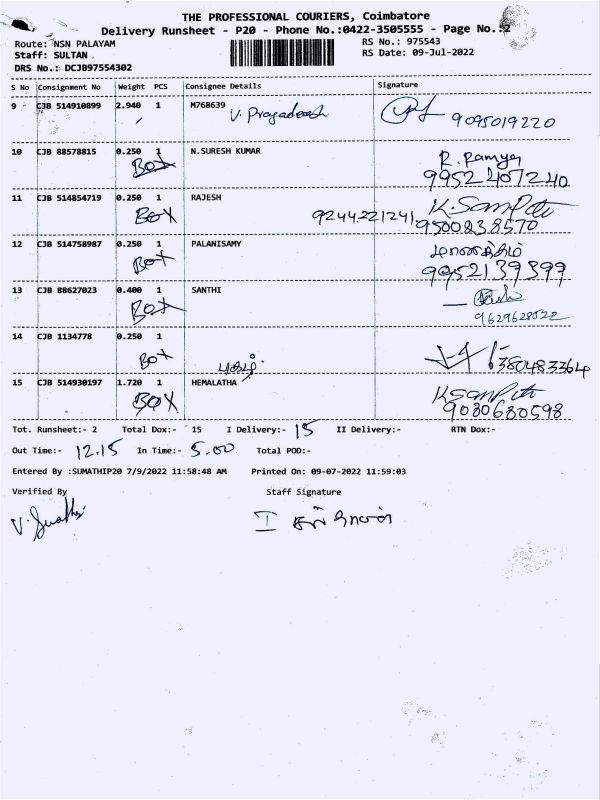 THE PROFESSIONAL COURIERS, Coimbatore
Delivery Runsheet - P20 - Phone No.:0422-3505555 - Page No.:2
Route: NSN PALAYAM RS No.: 975543
Staff: SULTAN . RS Date: 09-Jul-2022
DRS No.: DCJB97554302
S No Consignment No Weight PCS Consignee Details Signature
9 CJB 514910899 2.940 1 M768639
V. Pragadeesh 9095019220
10 CJB 88578815 0.250 1 N.SURESH KUMAR R. Ramya
BOX 9952407240
11 CJB 514854719 0.250 1 RAJESH K. Sampath
BOX 9244221241, 9500838570
12 CJB 514758987 0.250 1 PALANISAMY
BOX 9952139399
13 CJB 88627023 0.400 1 SANTHI
BOX 9629628522
14 CJB 1134778 0.250 1
BOX புகழ் 6380483364
15 CJB 514930197 1.720 1 HEMALATHA K Sampath
BOX 9080680598
Tot. Runsheet:- 2 Total Dox:- 15 I Delivery:- 15 II Delivery:- RTN Dox:-
Out Time:- 12.15 In Time:- 5.00 Total POD:-
Entered By :SUMATHIP20 7/9/2022 11:58:48 AM Printed On: 09-07-2022 11:59:03
Verified By Staff Signature